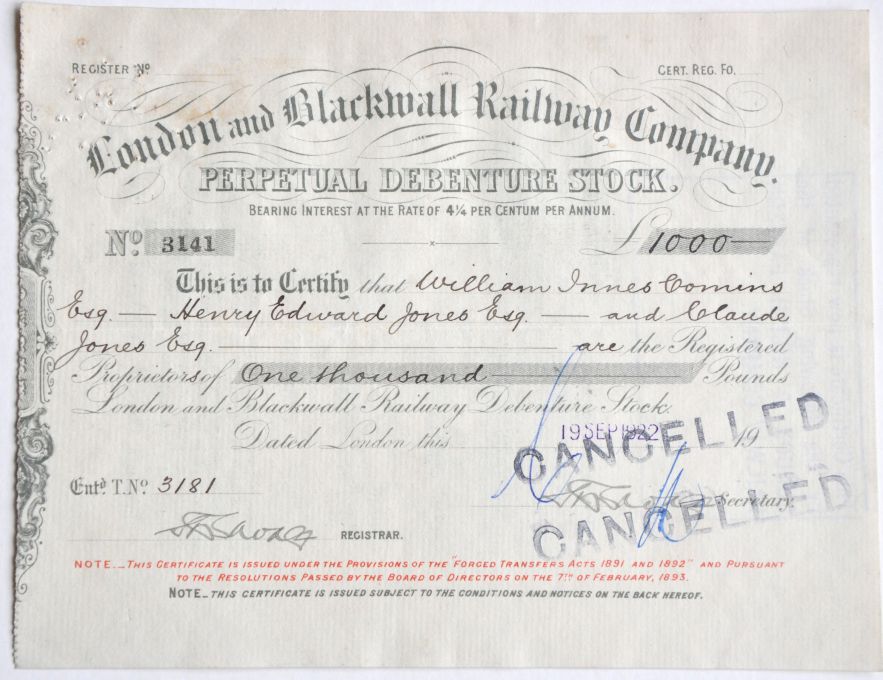 REGISTER Nº
CERT. REG. FO.
London and Blackwall Railway Company.
PERPETUAL DEBENTURE STOCK.
BEARING INTEREST AT THE RATE OF 4¼ PER CENTUM PER ANNUM.
Nº 3141 £1000
This is to Certify that William Innes Comins
Esq. — Henry Edward Jones Esq. — and Claude
Jones Esq. — are the Registered
Proprietors of One thousand Pounds
London and Blackwall Railway Debenture Stock.
Dated London this 19 SEP 1922 19
CANCELLED
Entd. T.Nº 3181
Secretary.
CANCELLED
REGISTRAR.
NOTE._ THIS CERTIFICATE IS ISSUED UNDER THE PROVISIONS OF THE "FORGED TRANSFERS ACTS 1891 AND 1892" AND PURSUANT
TO THE RESOLUTIONS PASSED BY THE BOARD OF DIRECTORS ON THE 7TH OF FEBRUARY, 1893.
NOTE_ THIS CERTIFICATE IS ISSUED SUBJECT TO THE CONDITIONS AND NOTICES ON THE BACK HEREOF.